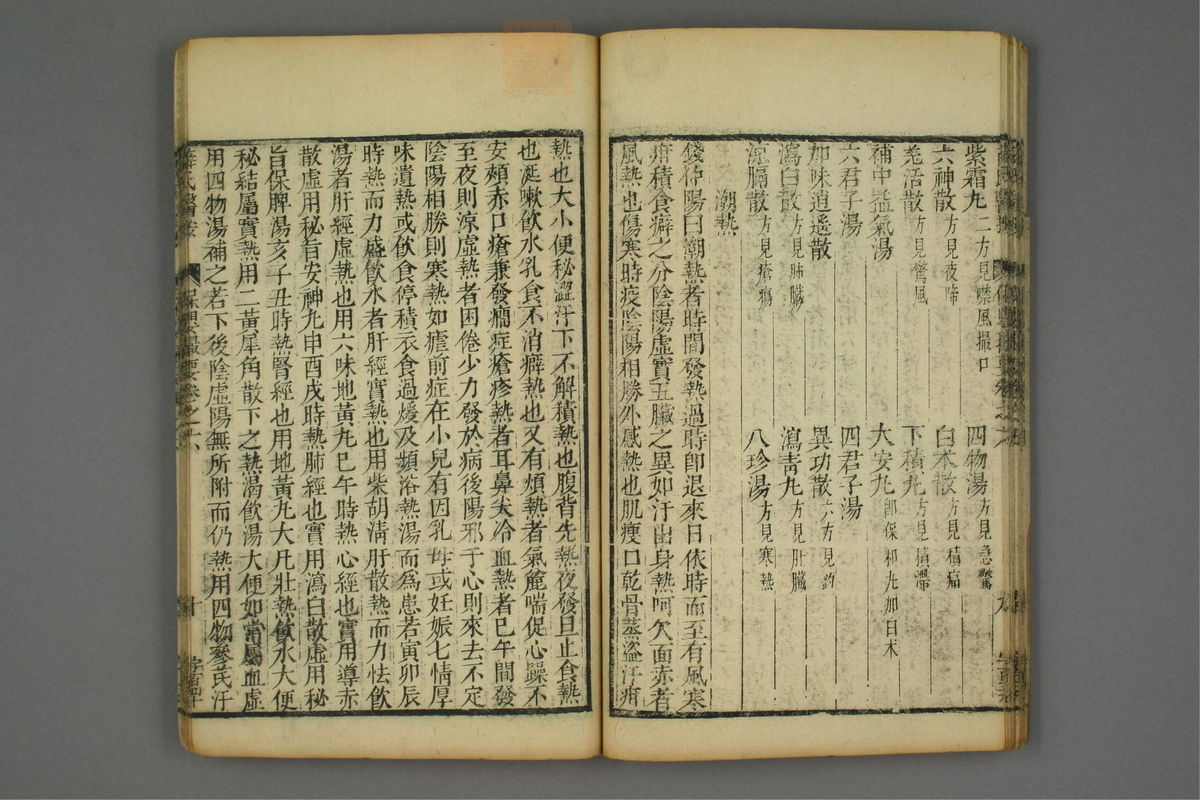 紫霜丸二方見噤風撮口 四物湯方見急驚
六神散方見夜啼 白朮散方見積痛
羗活散方見驚風 下積丸方見積滯
補中益氣湯 大安丸即保和丸加白朮
六君子湯 四君子湯
加味逍遥散方見肺臟 異功散六方見
瀉白散方見肺臟 瀉青丸方見肝臟
涼膈散方見瘡瘍 八珍湯方見寒熱
潮熱
錢仲陽曰潮熱者時間發熱過時即退來日依時而至有風寒
疳積食癖之分陰陽虛實五臟之異如汗出身熱呵欠面赤者
風熱也傷寒時疫陰陽相勝外感熱也肌瘦口乾骨蒸盜汗疳
熱也大小便秘澀汗下不解積熱也腹背先熱夜發旦止食熱
也涎嗽飲水乳食不消癖熱也又有煩熱者氣麄喘促心躁不
安頰赤口瘡兼發癎症瘡疹熱者耳鼻尖冷血熱者巳午間發
至夜則涼虛熱者困倦少力發於病後陽邪干心則來去不定
陰陽相勝則寒熱如瘧前症在小兒有因乳母或妊娠七情厚
味遺熱或飲食停積衣食過煖及頻浴熱湯而爲患若寅卯辰
時熱而力盛飲水者肝經實熱也用柴胡清肝散熱而力怯飲
湯者肝經虛熱也用六味地黃丸巳午時熱心經也實用導赤
散虛用秘旨安神丸申酉戌時熱肺經也實用瀉白散虛用秘
旨保脾湯亥子丑時熱腎經也用地黃丸大凡壯熱飲水大便
秘結屬實熱用二黃犀角散下之熱渴飲湯大便如常屬血虛
用四物湯補之若下後陰虛陽無所附而仍熱用四物參芪汗
薛氏醫按 保嬰撮要卷之六 十